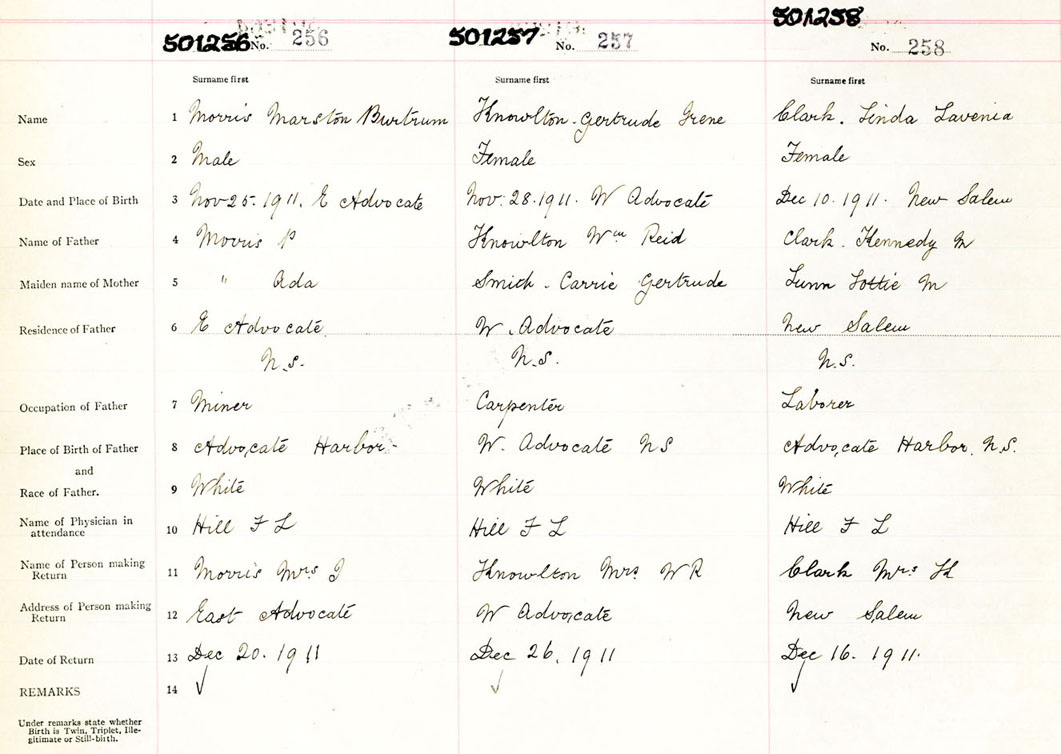 501256 No. 256 501257 No. 257 501258 No. 258
Surname first Surname first Surname first
Name 1 Morris Marston Burtrum Knowlton. Gertrude Grene Clark. Linda Lavenia
Sex 2 Male Female Female
Date and Place of Birth 3 Nov 25. 1911. E Advocate Nov. 28. 1911. W Advocate Dec 10. 1911. New Salem
Name of Father 4 Morris P Knowlton Wm Reid Clark. Kennedy M
Maiden name of Mother 5 " Ada Smith. Carrie Gertrude Lunn Lottie M
Residence of Father 6 E Advocate W. Advocate New Salem
N.S. N.S. N.S.
Occupation of Father 7 Miner Carpenter Laborer
Place of Birth of Father 8 Advocate Harbor W. Advocate NS Advocate Harbor. N.S.
and
Race of Father. 9 White White White
Name of Physician in
attendance 10 Hill F L Hill F L Hill F L
Name of Person making
Return 11 Morris Mrs Knowlton Mrs W R Clark Mrs
Address of Person making
Return 12 East Advocate W Advocate New Salem
Date of Return 13 Dec 20. 1911 Dec 26. 1911 Dec 16. 1911.
REMARKS 14 √ √ √
Under remarks state whether
Birth is Twin, Triplet, Ille-
gitimate or Still-birth.